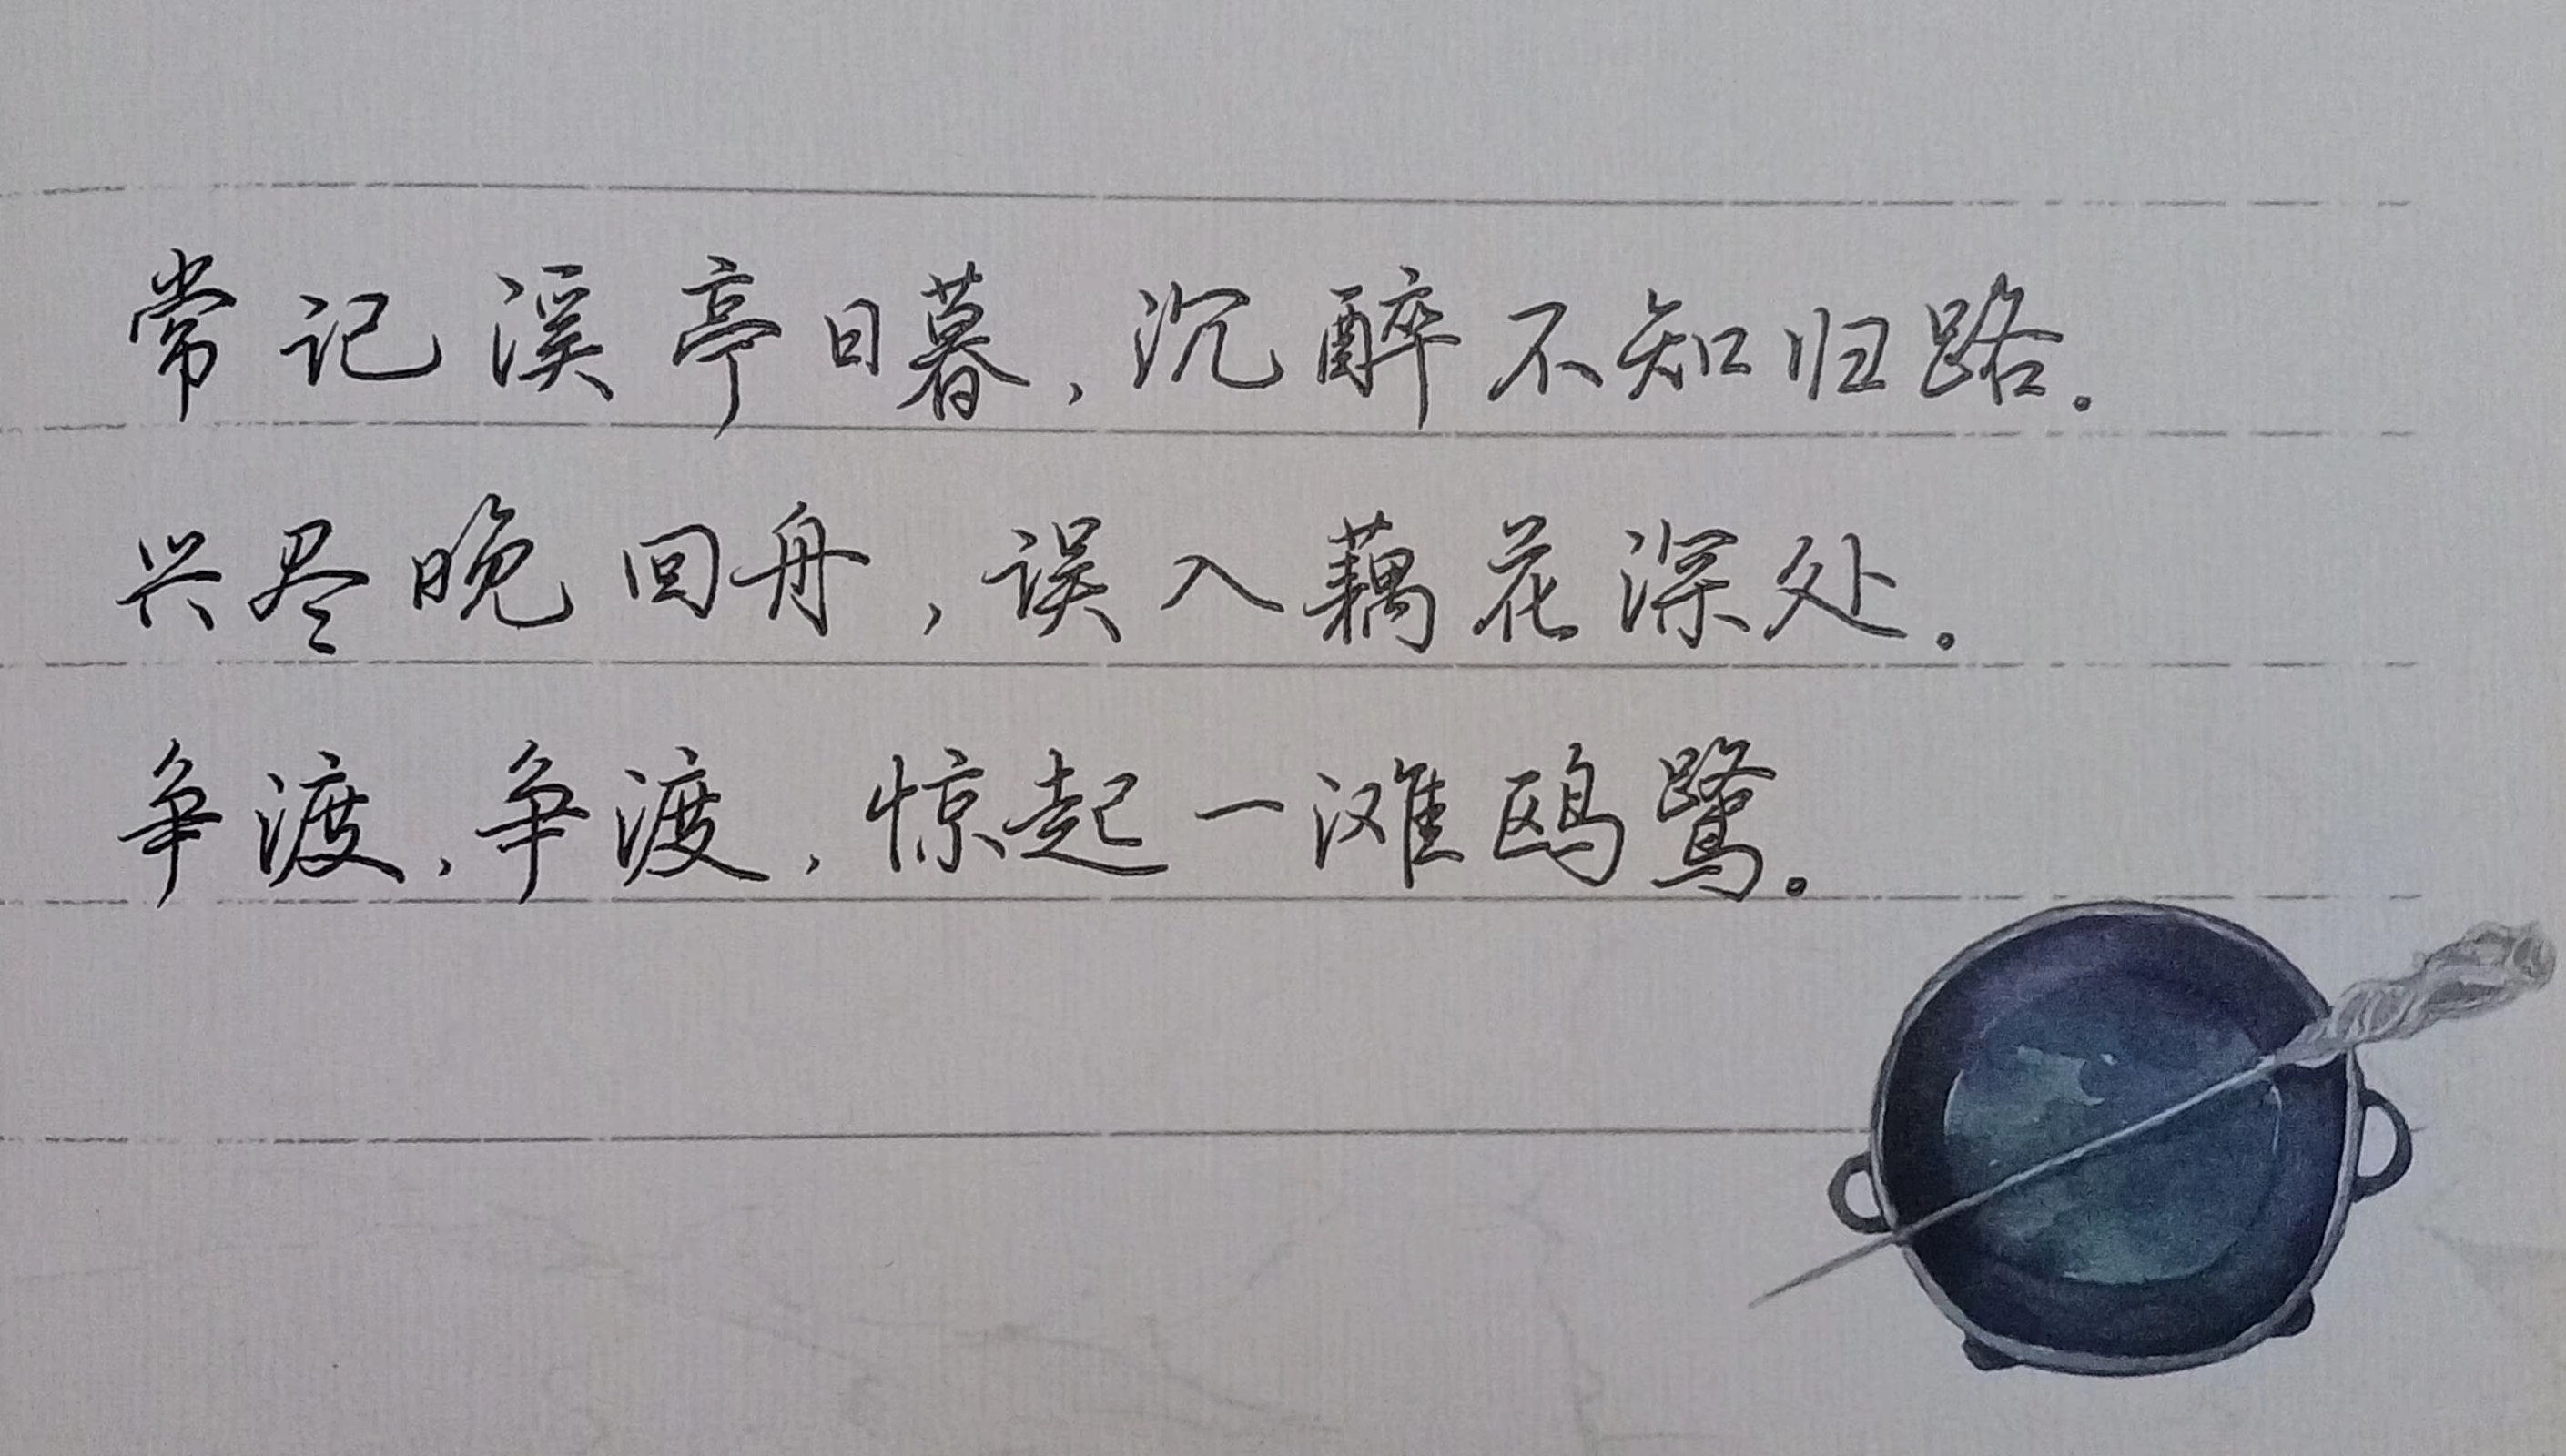 常记溪亭日暮，沉醉不知归路。
兴尽晚回舟，误入藕花深处。
争渡，争渡，惊起一滩鸥鹭。